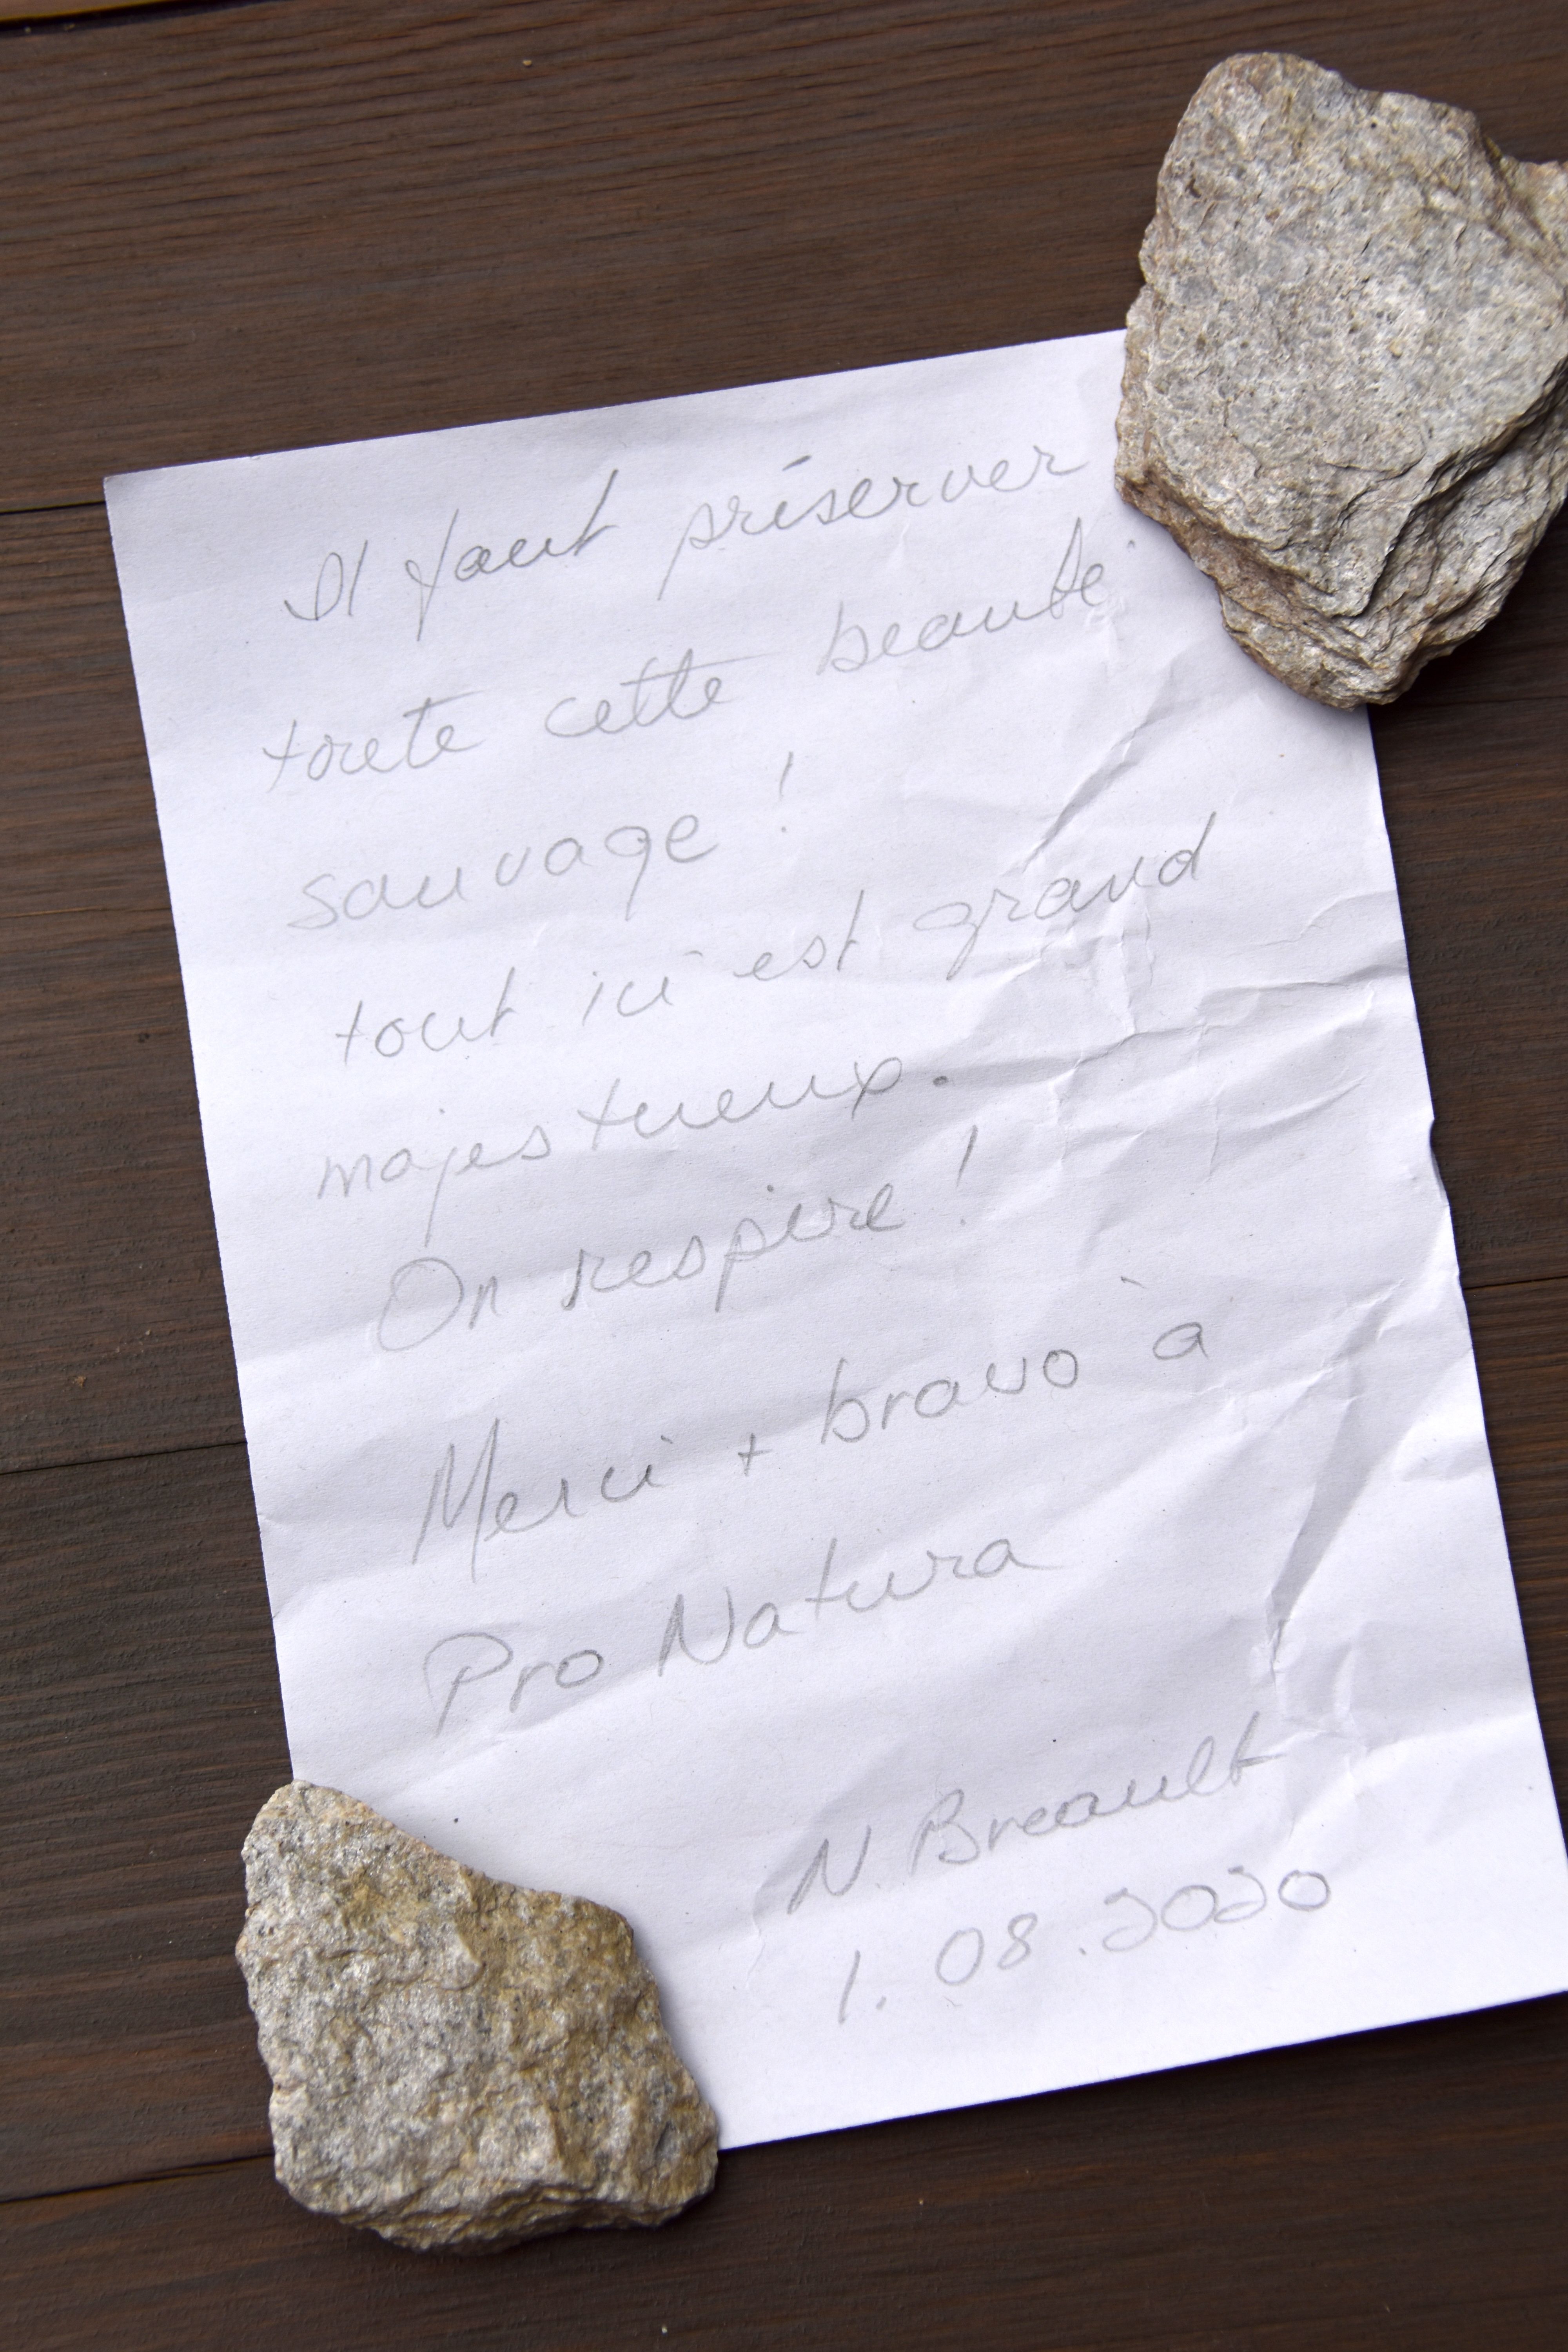 Il faut préserver
toute cette beauté
sauvage !
tout ici est grand
majestueux.
On respire !
Merci + bravo à
Pro Natura
N. Breault
1. 08. 2020